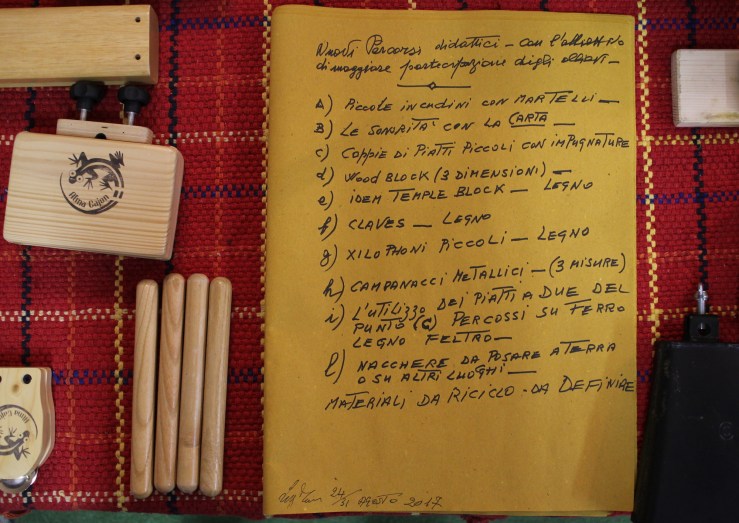 Nuovi Percorsi didattici - con l'obiettivo
di maggiore partecipazione degli utenti -
A) Piccole incudini con MARTELLI -
B) LE SONORITA' CON LA CARTA -
c) COPPIE DI PIATTI PICCOLI CON IMPUGNATURE
d) WOOD BLOCK (3 DIMENSIONI) -
e) IDEM TEMPLE BLOCK - LEGNO
f) CLAVES - LEGNO
g) XILOPHONI PICCOLI - LEGNO
h) CAMPANACCI METALLICI - (3 MISURE)
i) L'UTILIZZO DEI PIATTI A DUE DEL
PUNTO (C) PERCOSSI SU FERRO
LEGNO FELTRO -
l) NACCHERE DA POSARE A TERRA
O SU ALTRI LUOGHI -
MATERIALI DA RICICLO - DA DEFINIRE
24/31 AGOSTO 2017
Cajun